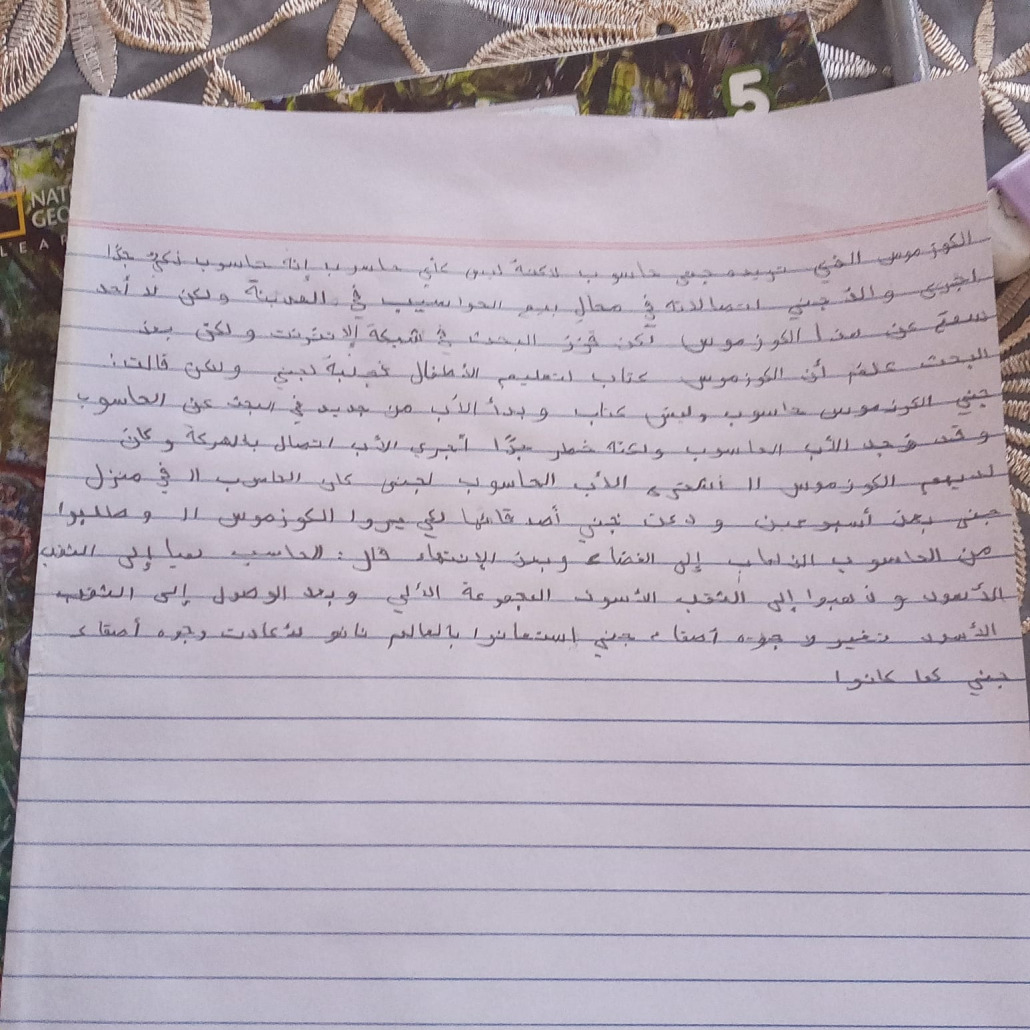 5
NAT
GEO
LEAR
الكوزموس الذي تريده جنى حاسوب لاكنهُ ليس كأي حاسوب إنه حاسوب ذكيٌ جدًا
اجرى والد جنى اتصالاته في محال بيع الحواسيب في المدينة ولكن لا أحد
سمع عن هذا الكوزموس لكن قرر البحث في شبكة الإنترنت ولكن بعد
البحث علم أن الكوزموس كتاب لتعليم الأطفال فجلبهُ لجنى ولكن قالت:
جنى الكوزموس حاسوب وليس كتاب وبدأ الأب من جديد في البحث عن الحاسوب
وقد وجد الأب الحاسوب ولكنه خطر جدًا أجرى الأب اتصال بالشركة وكان
لديهم الكوزموس !! اشترى الأب الحاسوب لجنى كان الحاسوب !! في منزل
جنى بعد أسبوعين ودعت جنى أصدقائها لكي يروا الكوزموس !! وطلبوا
من الحاسوب الذهاب إلى الفضاء وبعد الإنتهاء قال: الحاسب هيا إلى الثقب
الأسود وذهبوا إلى الثقب الأسود وبعد الوصول إلى الثقب
الأسود تغير وجوه أصقاء جنى إستعانوا بالعالم نانو وجوه أصقاء
جنى كما كانوا